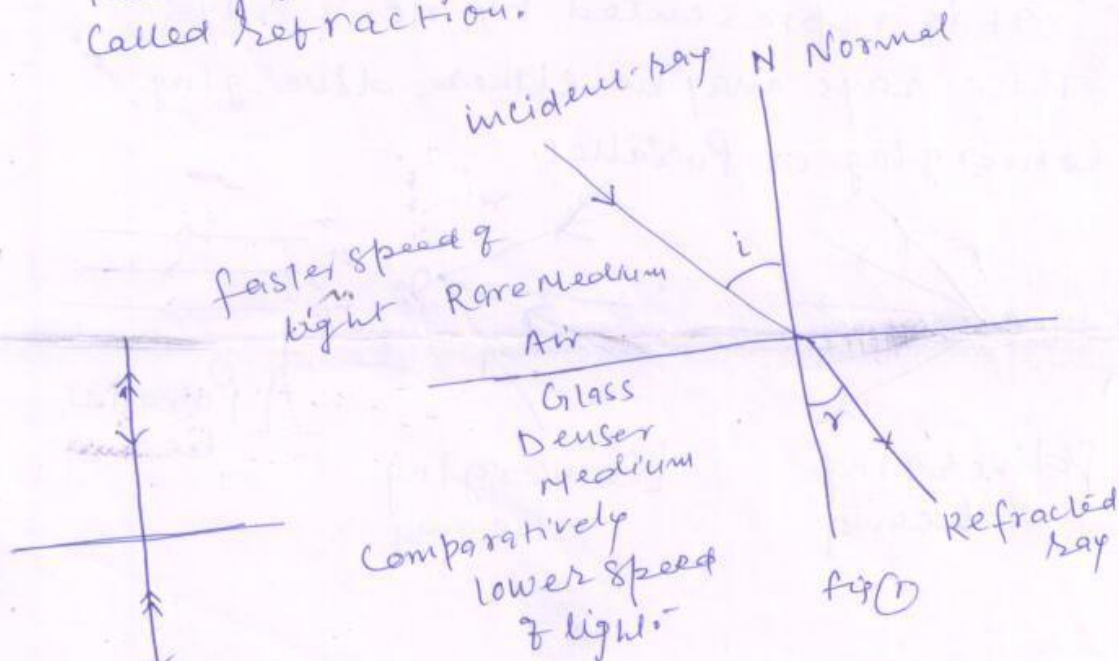 Called refraction.
incident ray
N Normal
i
faster speed of
light
Rare Medium
Air
Glass
Denser
Medium
Comparatively
lower speed
of light.
r
Refracted
ray
fig 1